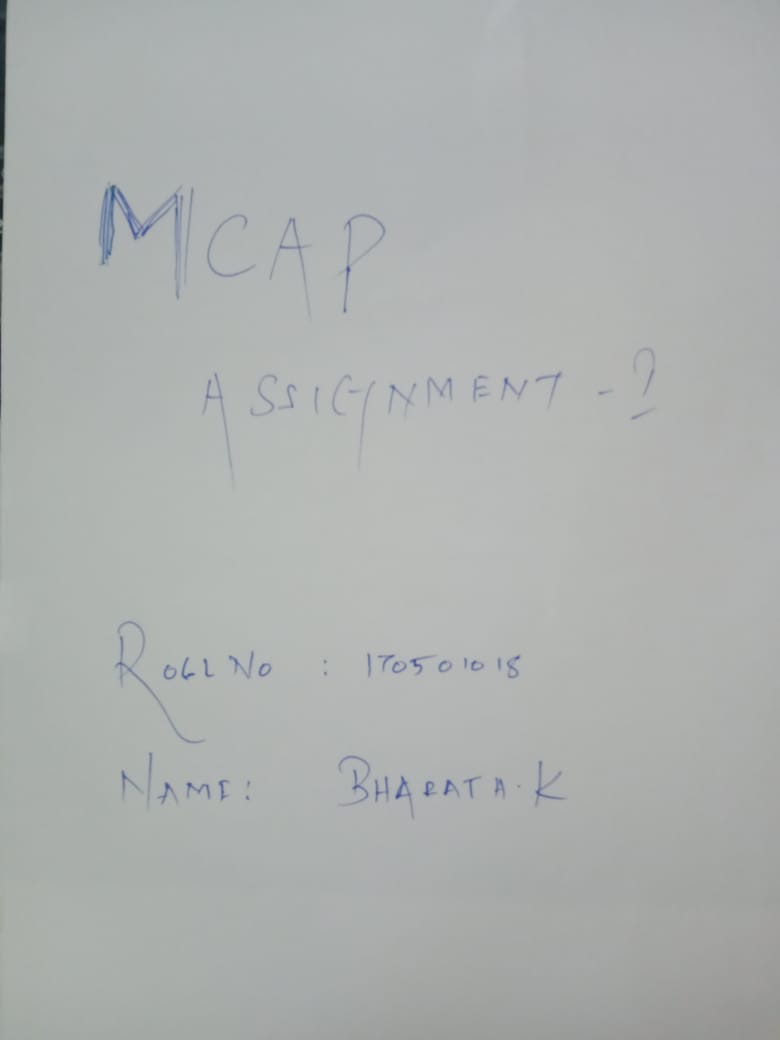 MCAP
ASSIGNMENT - ?
ROLL NO : 170501018
NAME: BHARATA.K